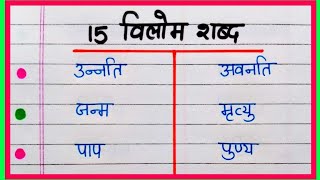 15 विलोम शब्द
उन्नति अवनति
जन्म मृत्यु
पाप पुण्य